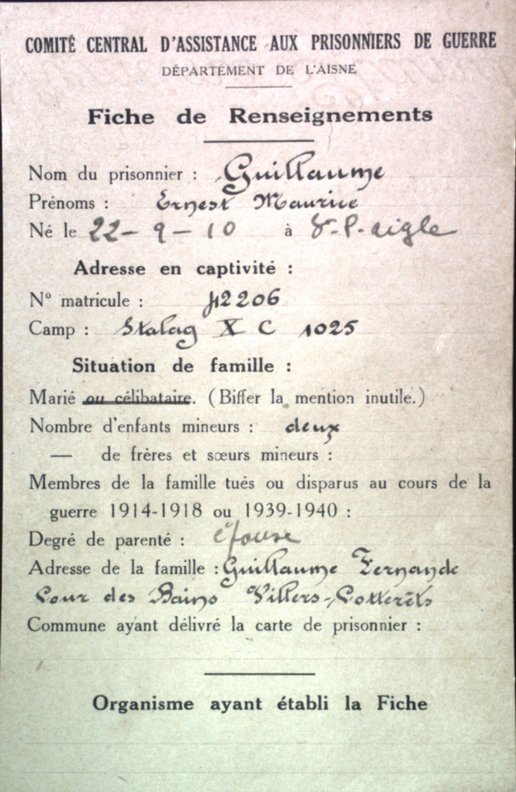 COMITÉ CENTRAL D'ASSISTANCE AUX PRISONNIERS DE GUERRE
DÉPARTEMENT DE L'AISNE
Fiche de Renseignements
Nom du prisonnier : Guillaume
Prénoms : Ernest Maurice
Né le 22-9-10 à V-P-aigle
Adresse en captivité :
N° matricule : 42206
Camp : Stalag X C 1025
Situation de famille :
Marié ou célibataire. (Biffer la mention inutile.)
Nombre d'enfants mineurs : deux
— de frères et sœurs mineurs :
Membres de la famille tués ou disparus au cours de la
guerre 1914-1918 ou 1939-1940 :
Degré de parenté : épouse
Adresse de la famille : Guillaume Fernande
Cour des Bains Villers-Cotterêts
Commune ayant délivré la carte de prisonnier :
Organisme ayant établi la Fiche